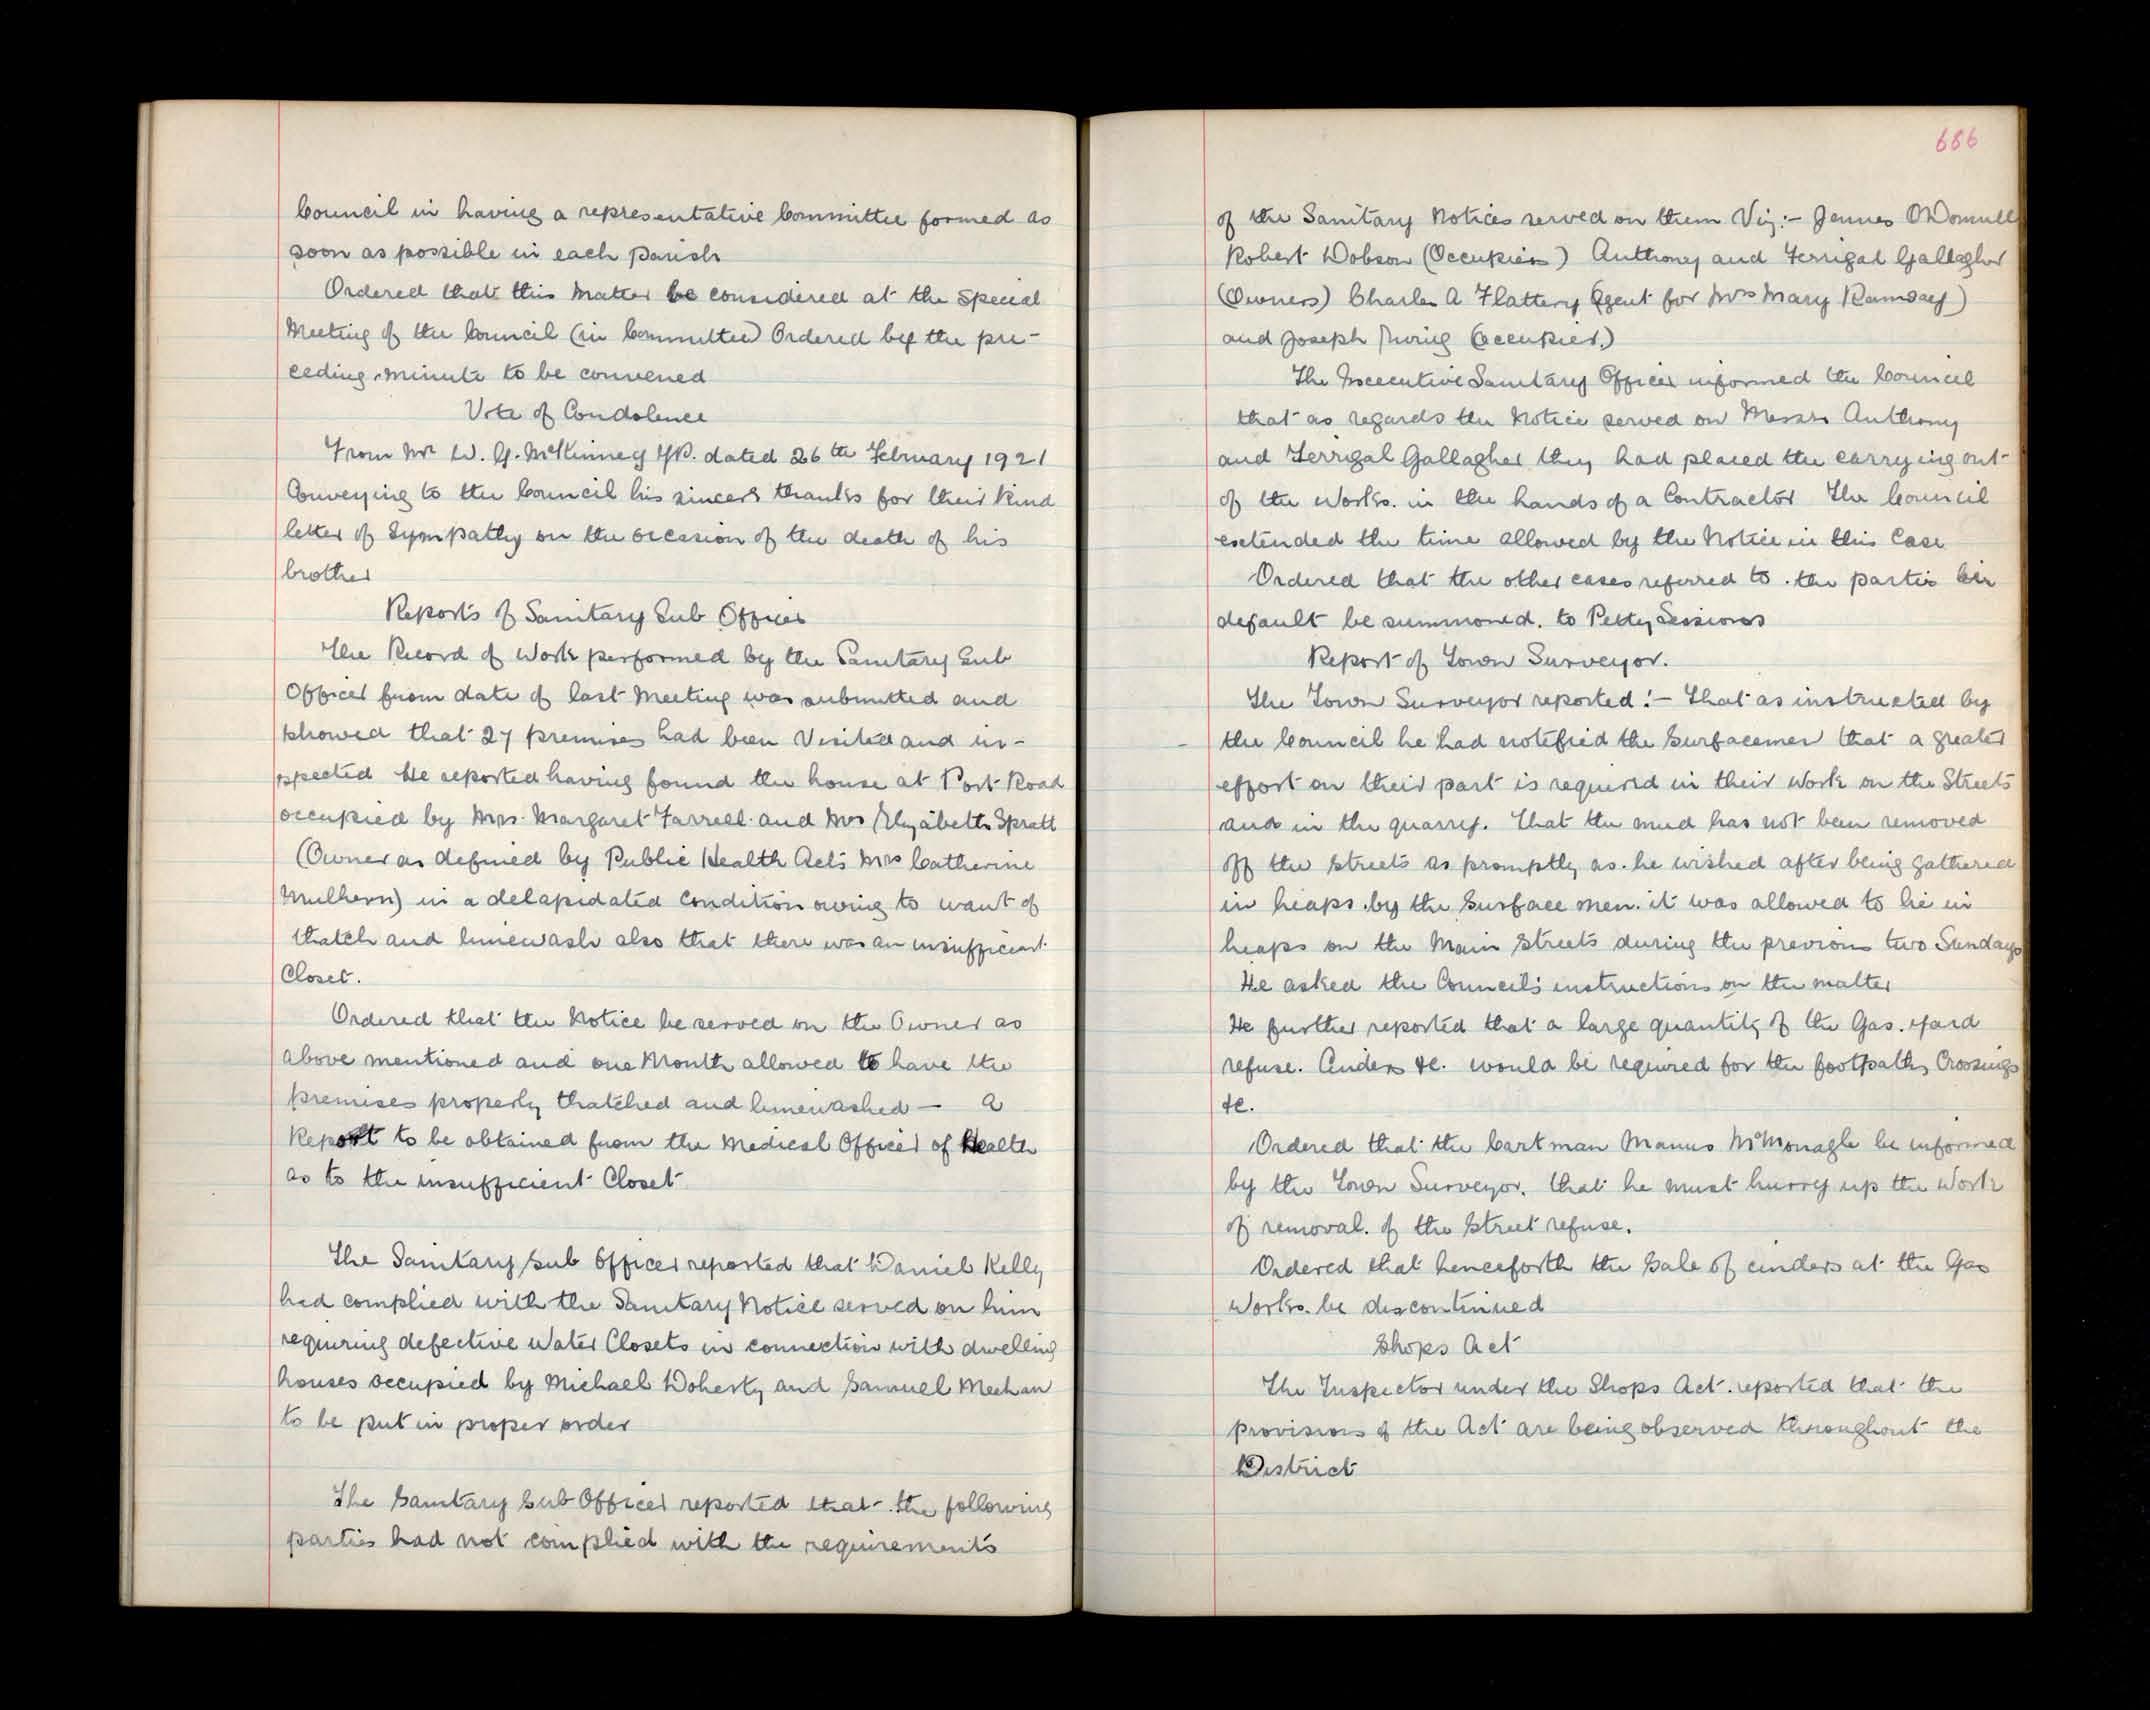 Council in having a representative Committee formed as
soon as possible in each parish
Ordered that this Matter be considered at the Special
Meeting of the Council (in Committee) Ordered by the pre-
ceding minute to be convened
Vote of Condolence
From Mr W. G. McKinney J.P. dated 26th February 1921
Conveying to the Council his sincere thanks for their kind
letter of Sympathy on the occasion of the death of his
brother
Reports of Sanitary Sub Officer
The Record of Work performed by the Sanitary Sub
Officer from date of last Meeting was submitted and
showed that 27 premises had been Visited and in-
spected He reported having found the house at Port Road
occupied by Mrs Margaret Farrell and Mrs Elizabeth Spratt
(Owner as defined by Public Health Acts Mrs Catherine
Mulhern) in a delapidated Condition owing to want of
thatch and limewash also that there was an insufficient
Closet.
Ordered that the Notice be served on the Owner as
above mentioned and one Month allowed to have the
premises properly thatched and limewashed — a
Report to be obtained from the Medical Officer of Health
as to the insufficient Closet
The Sanitary Sub Officer reported that Daniel Kelly
had complied with the Sanitary Notice served on him
requiring defective Water Closets in connection with dwelling
houses occupied by Michael Doherty and Samuel Meehan
to be put in proper order
The Sanitary Sub Officer reported that the following
parties had not complied with the requirements
686
of the Sanitary Notices served on them Viz:- James O'Donnell
Robert Dobson (Occupiers) Anthony and Ferrigal Gallagher
(Owners) Charles A Flattery (Agent for Mrs Mary Ramsay)
and Joseph (Occupier.)
The Executive Sanitary Officer informed the Council
that as regards the Notice served on Messrs Anthony
and Ferrigal Gallagher they had placed the carrying out
of the Works. in the hands of a Contractor The Council
extended the time allowed by the Notice in this Case
Ordered that the other cases referred to. the parties in
default be summoned. to Petty Sessions
Report of Town Surveyor.
The Town Surveyor reported:- That as instructed by
the Council he had notified the Surfacemen that a greater
effort on their part is required in their work on the Streets
and in the quarry. That the mud has not been removed
off the Streets as promptly as he wished after being gathered
in heaps by the Surface men. it was allowed to lie in
heaps on the Main Streets during the previous two Sundays
He asked the Council's instructions on the matter
He further reported that a large quantity of the Gas. yard
refuse. Cinders &c. would be required for the footpaths, Crossings
&c.
Ordered that the Cartman Manus McMonagle be informed
by the Town Surveyor. that he must hurry up the Work
of removal. of the Street refuse.
Ordered that henceforth the Sale of cinders at the Gas
Works. be discontinued
Shops Act
The Inspector under the Shops Act. reported that the
provisions of the Act are being observed throughout the
District